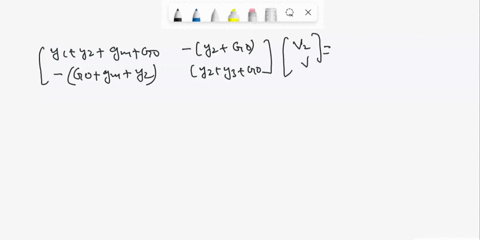 [ y1+y2+gm+G0 -(y2+G0) ] [ V2 ] =
[ -(G0+gm+y2) (y2+y3+G0 ] [ V ]